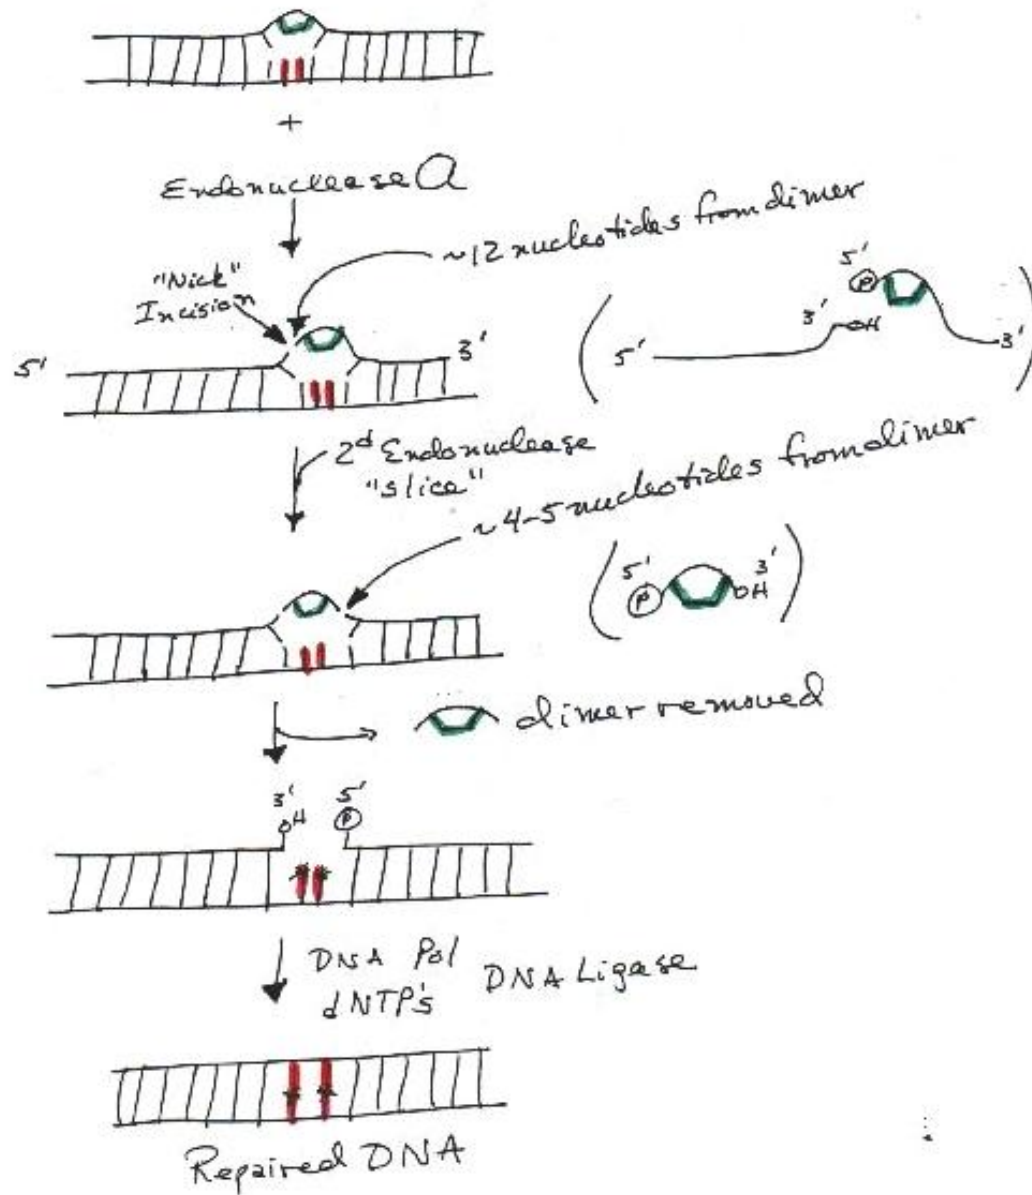 +
Endonuclease a
~12 nucleotides from dimer
"Nick"
Incision
5'
3'
5'
3'
OH
P
5'
3'
2d Endonuclease
"slice"
~4-5 nucleotides from dimer
5'
P
3'
OH
dimer removed
3'
OH
5'
P
DNA Pol
dNTP's
DNA Ligase
Repaired DNA